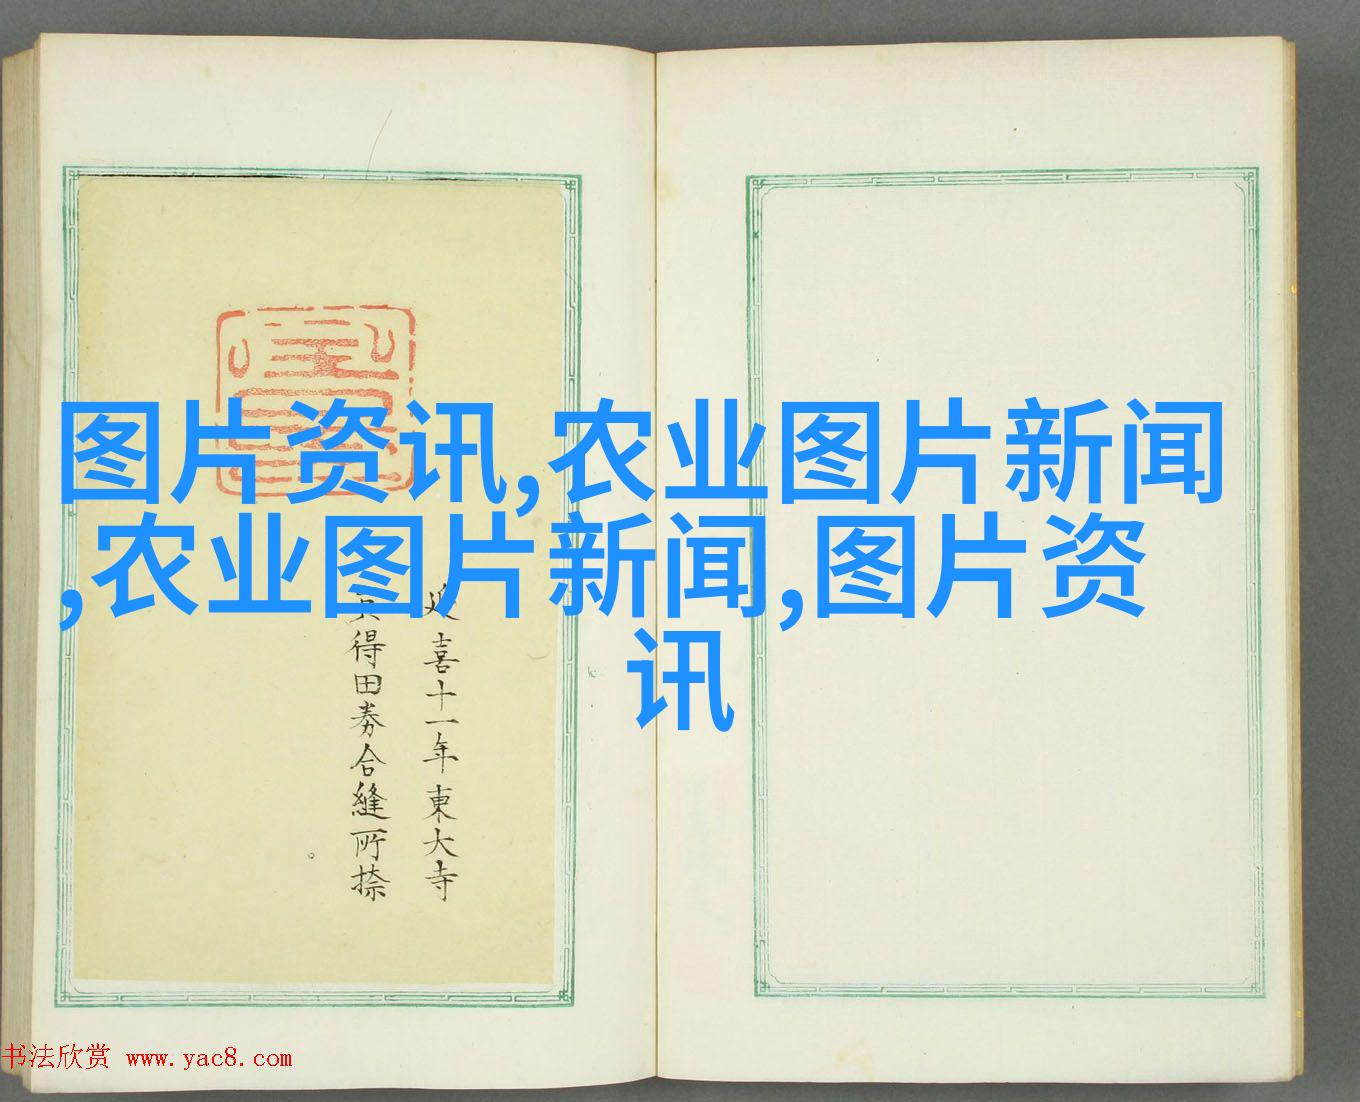 图片资讯,农业图片新闻
,农业图片新闻,图片资
讯
延喜十一年東大寺
得田券合縫所捺
书法欣赏 www.yac8.com